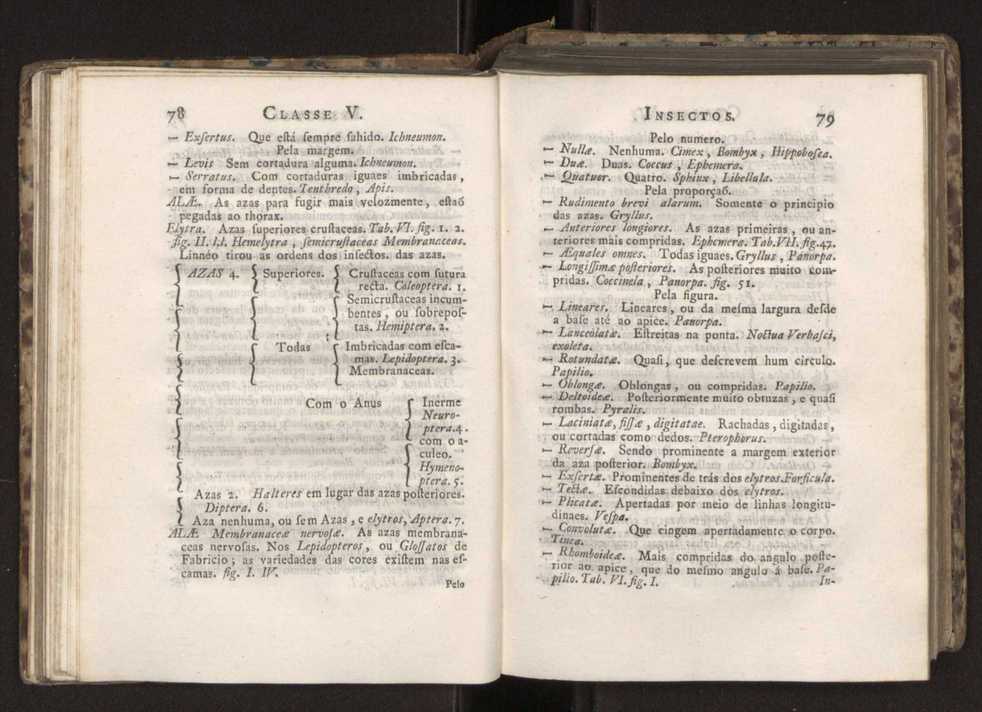 78 CLASSE V.
— Exſertus. Que eſtá ſempre ſahido. Ichneumon.
Pela margem.
— Levis Sem cortadura alguma. Ichneumon.
— Serratus. Com cortaduras iguaes imbricadas,
em fórma de dentes. Tenthredo, Apis.
ALÆ. As azas para fugir mais velozmente, eſtaõ
pegadas ao thorax.
Elytra. Azas ſuperiores cruſtaceas. Tab. VI. fig. 1. 2.
fig. II. l.l. Hemelytra, ſemicruſtaceas Membranaceas.
Linnéo tirou as ordens dos inſectos. das azas.
AZAS 4. Superiores. Cruſtaceas com ſutura
recta. Coleoptera. 1.
Semicruſtaceas incum-
bentes, ou ſobrepoſ-
tas. Hemiptera. 2.
Todas Imbricadas com eſca-
mas. Lepidoptera. 3.
Membranaceas.
Com o Anus Inerme
Neuro-
ptera.4.
com o a-
culeo.
Hymeno-
ptera. 5.
Azas 2. Halteres em lugar das azas poſteriores.
Diptera. 6.
Aza nenhuma, ou ſem Azas, e elytros, Aptera. 7.
ALÆ Membranaceæ nervoſæ. As azas membrana-
ceas nervoſas. Nos Lepidopteros, ou Gloſſatos de
Fabricio; as variedades das cores exiſtem nas eſ-
camas. fig. I. IV.
Pelo
INSECTOS. 79
Pelo numero.
— Nullæ. Nenhuma. Cimex, Bombyx, Hippoboſca.
— Duæ. Duas. Coccus, Ephemera.
— Quatuor. Quatro. Sphinx, Libellula.
Pela proporçaõ.
— Rudimento brevi alarum. Somente o principio
das azas. Gryllus.
— Anteriores longiores. As azas primeiras, ou an-
teriores mais compridas. Ephemera. Tab.VII. fig.47.
— Æquales omnes. Todas iguaes. Gryllus, Panorpa.
— Longiſſimæ poſteriores. As poſteriores muito com-
pridas. Coccinela, Panorpa. fig. 51.
Pela figura.
— Lineares. Lineares, ou da meſma largura deſde
a baſe até ao apice. Panorpa.
— Lanceolatæ. Eſtreitas na ponta. Noctua Verbaſci,
exoleta.
— Rotundatæ. Quaſi, que deſcrevem hum circulo.
Papilio.
— Oblongæ. Oblongas, ou compridas. Papilio.
— Deltoideæ. Poſteriormente muito obtuzas, e quaſi
rombas. Pyralis.
— Laciniatæ, fiſſæ, digitatae. Rachadas, digitadas,
ou cortadas como dedos. Pterophorus.
— Reverſæ. Sendo prominente a margem exterior
da aza poſterior. Bombyx.
— Exſertæ. Prominentes de trás dos elytros. Forficula.
— Tectæ. Eſcondidas debaixo dos elytros.
— Plicatæ. Apertadas por meio de linhas longitu-
dinaes. Veſpa.
— Convolutæ. Que cingem apertadamente o corpo.
Tinea.
— Rhomboideæ. Mais compridas do angulo poſte-
rior ao apice, que do meſmo angulo á baſe. Pa-
pilio. Tab. VI. fig. I.
In-